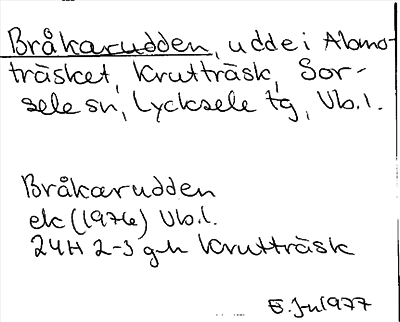 Bråkarudden, udde i Alamo-
träsket, Krutträsk, Sor-
sele sn, Lycksele tg, Vb.l.
Bråkarudden
ek (1976) Vb.l.
24H 2-3 g-h Krutträsk
5. Jul 1977